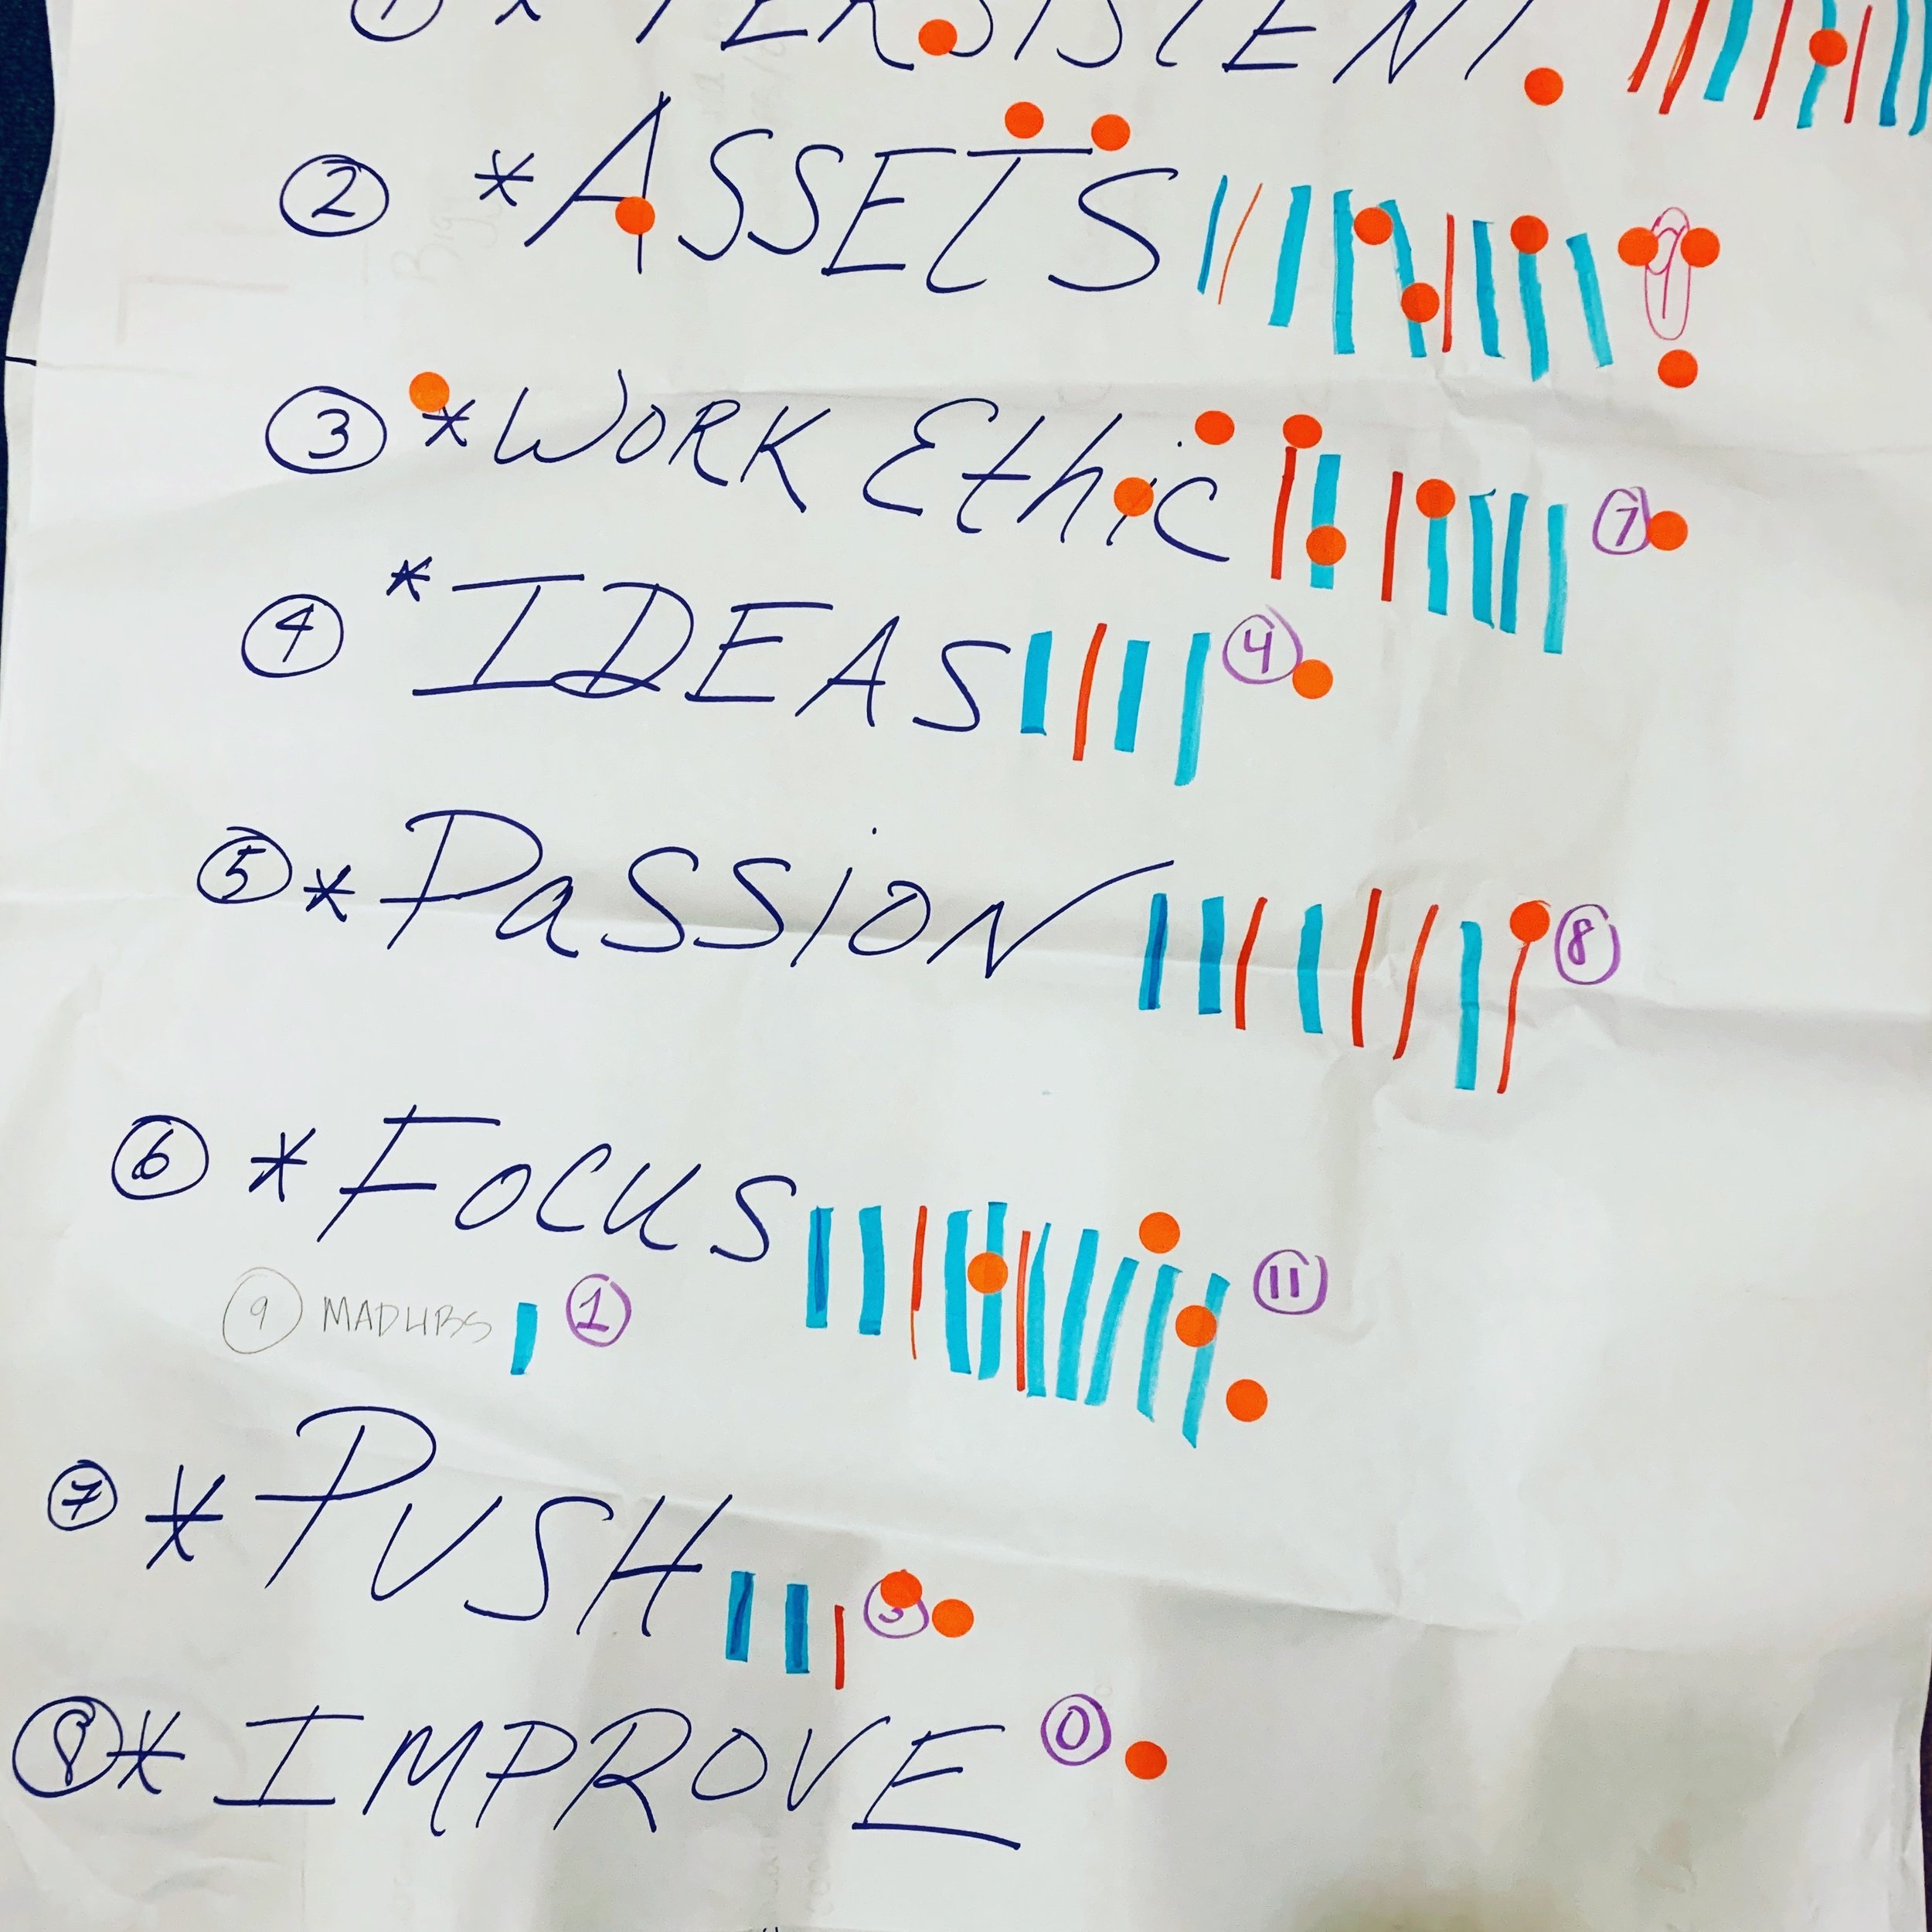 ① * PERSISTENT
② * ASSETS 9
③ * WORK Ethic 7
④ * IDEAS 4
⑤ * PaSSiON 8
⑥ * FOCUS 11
⑨ 1
⑦ * PUSH 3
⑧ * IMPROVE 0